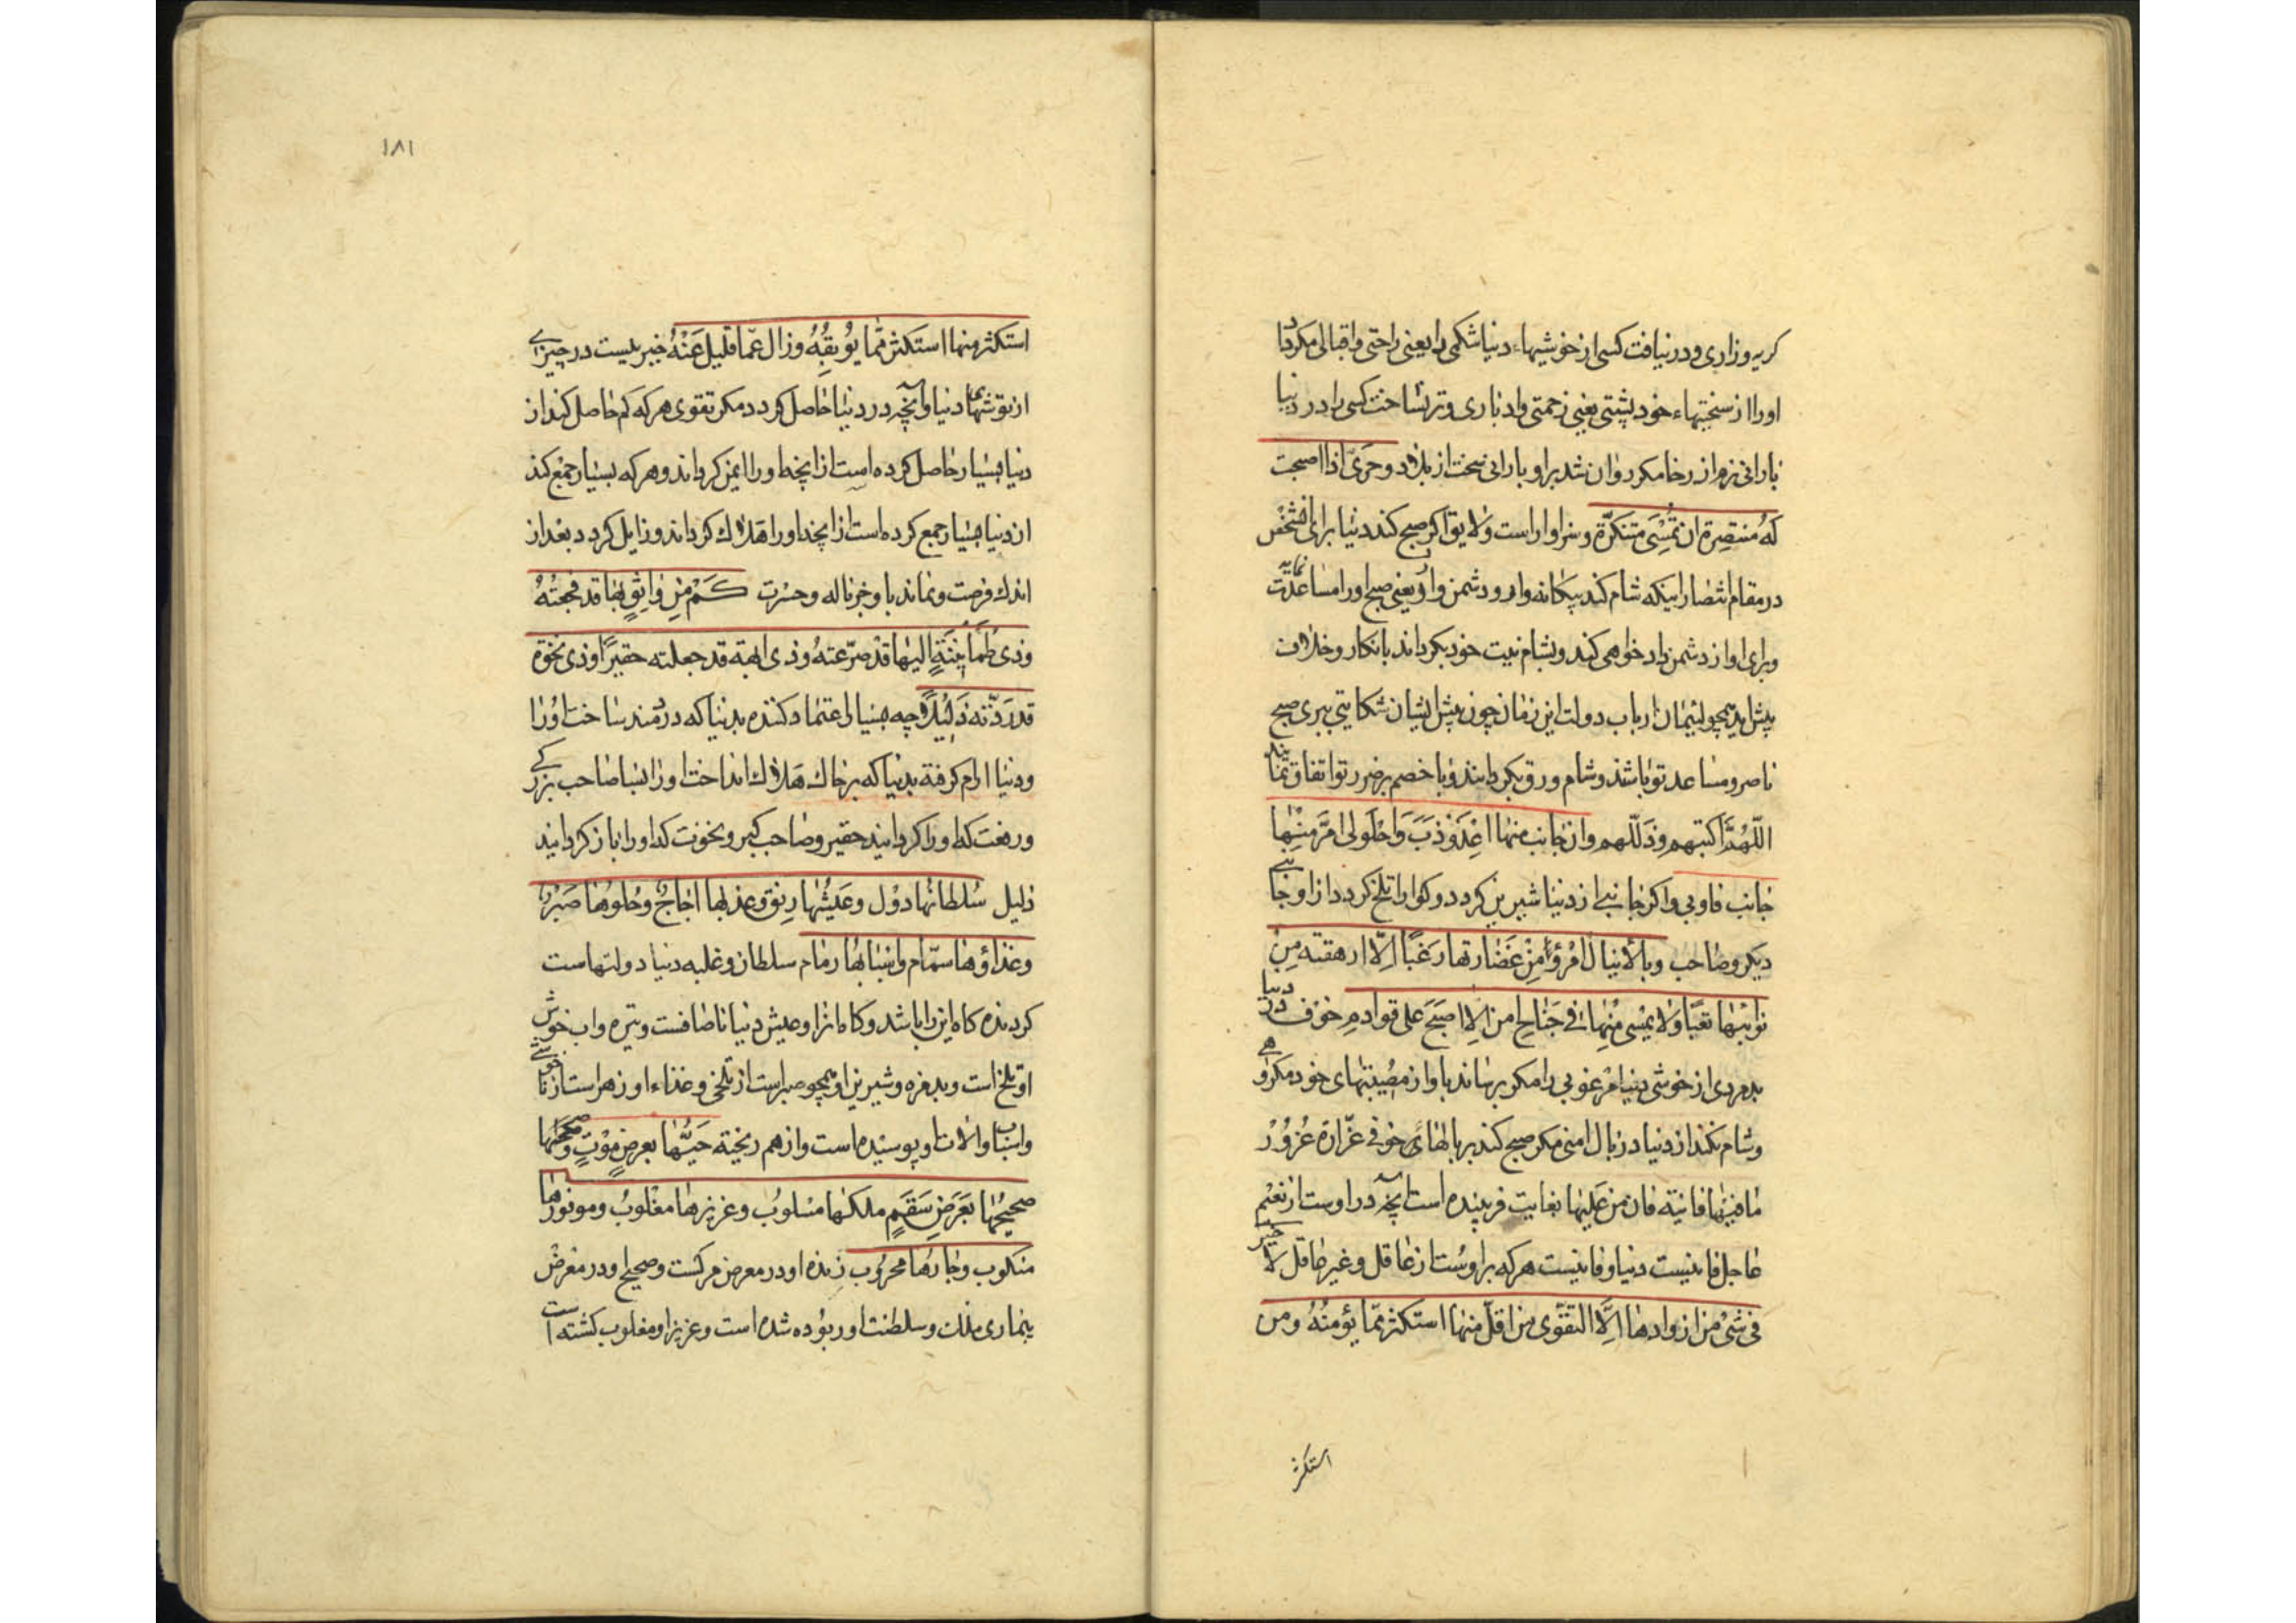 كريه وزارى و در نيافت كسى از خوشيهاء دنيا شكمى را يعنى راحتى و اقبالى مكر داد
اورا از سختيهاء خود پشتى يعنى زحمتى و ادبارى و تر نساخت كسى را در دنيا
بارانى نرم از رخا مكر روان شد بر او بارانى سخت از بلا و حرىّ اذا اصبحت
له منتصرة ان تمسى متنكرّة و سزاوار است و لايق اكر صبح كند دنيا براى شخص
در مقام انتصار اينكه شام كند بيكانه وار و دشمن وار يعنى صبح اورا مساعدت نمايد
و براى او از دشمن داد خواهى كند و بشام نيت خود بكرداند بانكار و خلاف
پيش ايد همچو لئيمان ارباب دولت اين زمان چون پيش ايشان شكايتى ببرى صبح
ناصر و مساعد تو باشد و شام ورق بكردانند و با خصم بر ضرر تو اتفاق نمايند
اللّهمّ اكبتهم و ذلّلهم و ان جانب منها اعذوذب و احلولى امرّ منها
جانب فاوبى و اكر جانبى از دنيا شيرين كردد و كوارا تلخ كردد از او جانبى
ديكر و صاحب وبا لا ينال امرؤ من غضارتها رغبا الّا ارهقته من
نوائبها تعبا و لا يمسى منها فى جناح امن الّا اصبح على قوادم خوف در دنيا
مردى از خوشى دنيا مرغوبى را مكر برساند باو از مصيبتهاى خود مكروهى
و شام نكند از دنيا در بال امنى مكر صبح كند بر بالهاى خوف غرّارة غرور
ما فيها فانية فان من عليها بغايت فريبنده است آنچه در اوست از نعيم
عاجل فانيست دنيا و فانيست هر كه بر اوست از عاقل و غير عاقل لا خير
فى شئ من ازوادها الّا التقوى من اقلّ منها استكثر ممّا يؤمنه و من
استكثر
١٨١
استكثر منها استكثر ممّا يوبقه و زال عمّا قليل عنه خير نيست در چيزى
از توشهاى دنيا و آنچه در دنيا حاصل كردد مكر تقوى هر كه كم حاصل كند از
دنيا بسيار حاصل كرده است از انچه اورا ايمن كرداند و هر كه بسيار جمع كند
از دنيا بسيار جمع كرده است از انچه اورا هلاك كرداند و زايل كردد بعد از
اندك فرصت و نماند با و جز ناله و حسرت كم من واثق بها قد فجعته
و ذى طمأنينة اليها قد صرعته و ذى ابهة قد جعلته حقيرًا و ذى نخوة
قد ردّته ذليلًا چه بسيار اعتماد كننده بدنيا كه دردمند ساخت اورا
و دنيا ارام كرفته بدنيا كه بر خاك هلاك انداخت اورا بسا صاحب بزركى
و رفعت كه اورا كردانيد حقير و صاحب كبر و نخوت كه اورا باز كردانيد
ذليل سلطانها دول و عيشها رنق و عذبها اجاج و حلوها صبر
و غذاؤها سمام و اسبابها رمام سلطان و غلبه دنيا دولتهاست
كردنده كاه اين را باشد و كاه انرا و عيش دنيا نا صافست و تيره و اب خوش
او تلخ است و بدمزه و شيرين او همچو صبر است از تلخى و غذاء او زهر است از ناخوشى
و اسباب و الات او پوسيده است و از هم ريخته حيّها بعرض موت و صحيحها
صحيحها بعرض سقم ملكها مسلوب و عزيزها مغلوب و موفورها
منكوب و جارها محروب زنده او در معرض مركست و صحيح او در معرض
بيمارى ملك و سلطنت او ربوده شده است و عزيز او مغلوب كشته است